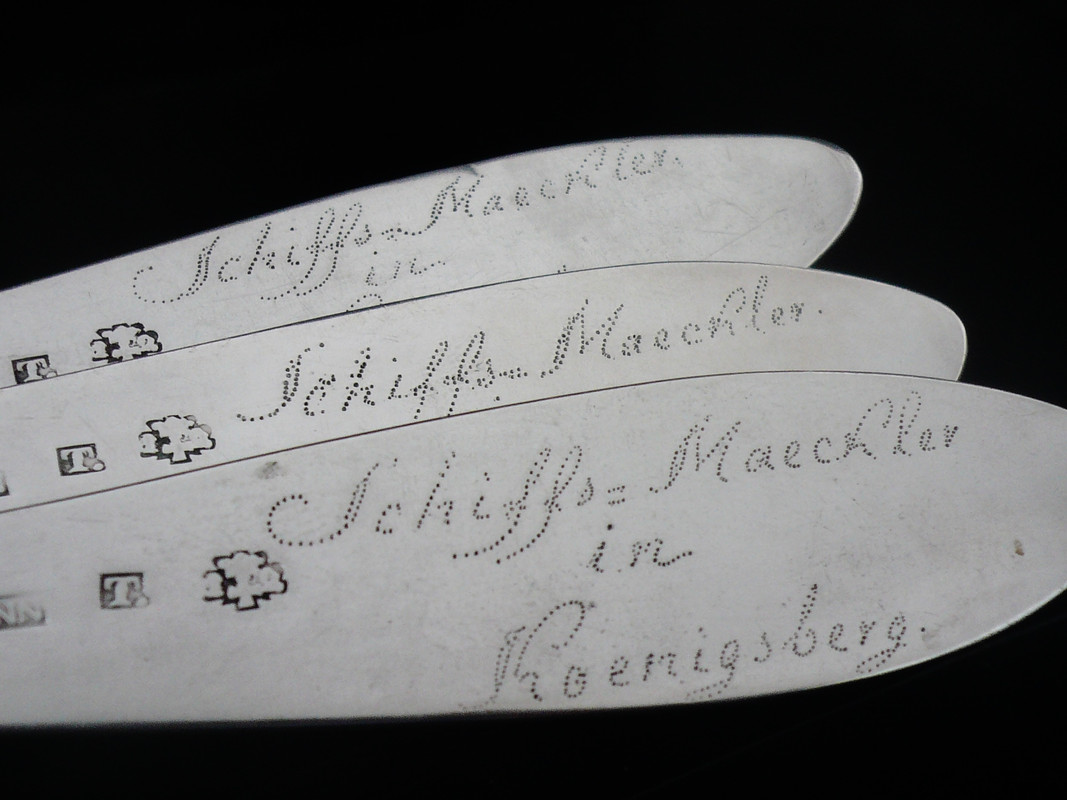 Schiffs=Maeckler.
in
T.
Schiffs=Maeckler.
T.
Schiffs=Maeckler
in
Koenigsberg.
T.
NN